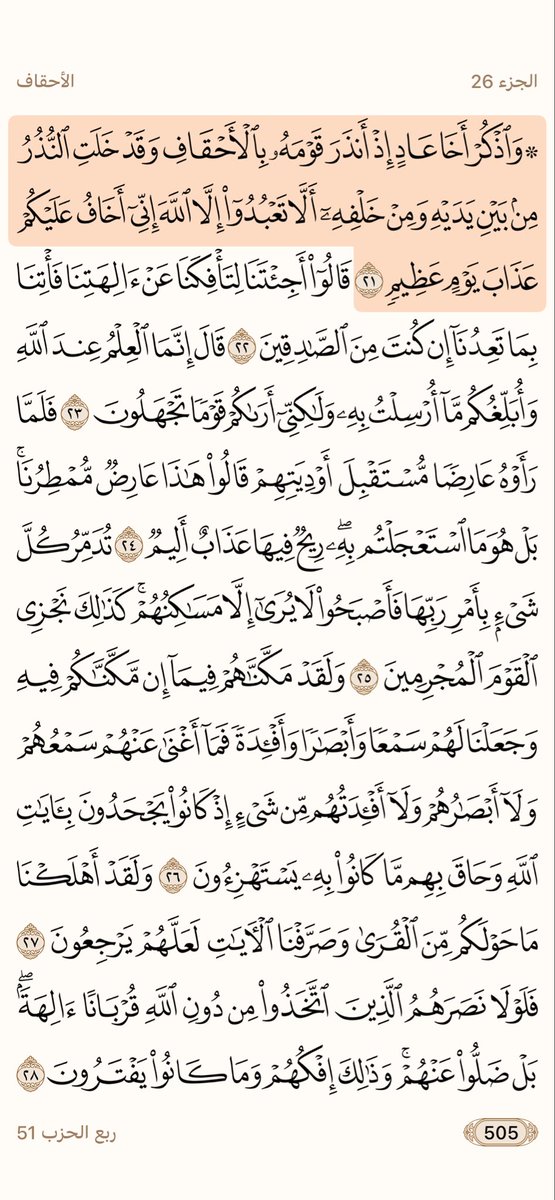 الجزء 26 الأحقاف
۞ وَٱذْكُرْ أَخَا عَادٍ إِذْ أَنذَرَ قَوْمَهُۥ بِٱلْأَحْقَافِ وَقَدْ خَلَتِ ٱلنُّذُرُ
مِنۢ بَيْنِ يَدَيْهِ وَمِنْ خَلْفِهِۦٓ أَلَّا تَعْبُدُوٓا۟ إِلَّا ٱللَّهَ إِنِّىٓ أَخَافُ عَلَيْكُمْ
عَذَابَ يَوْمٍ عَظِيمٍ ٢١ قَالُوٓا۟ أَجِئْتَنَا لِتَأْفِكَنَا عَنْ ءَالِهَتِنَا فَأْتِنَا
بِمَا تَعِدُنَآ إِن كُنتَ مِنَ ٱلصَّٰدِقِينَ ٢٢ قَالَ إِنَّمَا ٱلْعِلْمُ عِندَ ٱللَّهِ
وَأُبَلِّغُكُم مَّآ أُرْسِلْتُ بِهِۦ وَلَٰكِنِّىٓ أَرَىٰكُمْ قَوْمًا تَجْهَلُونَ ٢٣ فَلَمَّا
رَأَوْهُ عَارِضًا مُّسْتَقْبِلَ أَوْدِيَتِهِمْ قَالُوا۟ هَٰذَا عَارِضٌ مُّمْطِرُنَا ۚ
بَلْ هُوَ مَا ٱسْتَعْجَلْتُم بِهِۦ ۖ رِيحٌ فِيهَا عَذَابٌ أَلِيمٌ ٢٤ تُدَمِّرُ كُلَّ
شَىْءٍۭ بِأَمْرِ رَبِّهَا فَأَصْبَحُوا۟ لَا يُرَىٰٓ إِلَّا مَسَٰكِنُهُمْ ۚ كَذَٰلِكَ نَجْزِى
ٱلْقَوْمَ ٱلْمُجْرِمِينَ ٢٥ وَلَقَدْ مَكَّنَّٰهُمْ فِيمَآ إِن مَّكَّنَّٰكُمْ فِيهِ
وَجَعَلْنَا لَهُمْ سَمْعًا وَأَبْصَٰرًا وَأَفْـِٔدَةً فَمَآ أَغْنَىٰ عَنْهُمْ سَمْعُهُمْ
وَلَآ أَبْصَٰرُهُمْ وَلَآ أَفْـِٔدَتُهُم مِّن شَىْءٍ إِذْ كَانُوا۟ يَجْحَدُونَ بِـَٔايَٰتِ
ٱللَّهِ وَحَاقَ بِهِم مَّا كَانُوا۟ بِهِۦ يَسْتَهْزِءُونَ ٢٦ وَلَقَدْ أَهْلَكْنَا
مَا حَوْلَكُم مِّنَ ٱلْقُرَىٰ وَصَرَّفْنَا ٱلْـَٔايَٰتِ لَعَلَّهُمْ يَرْجِعُونَ ٢٧
فَلَوْلَا نَصَرَهُمُ ٱلَّذِينَ ٱتَّخَذُوا۟ مِن دُونِ ٱللَّهِ قُرْبَانًا ءَالِهَةًۢ ۖ
بَلْ ضَلُّوا۟ عَنْهُمْ ۚ وَذَٰلِكَ إِفْكُهُمْ وَمَا كَانُوا۟ يَفْتَرُونَ ٢٨
505 ربع الحزب 51